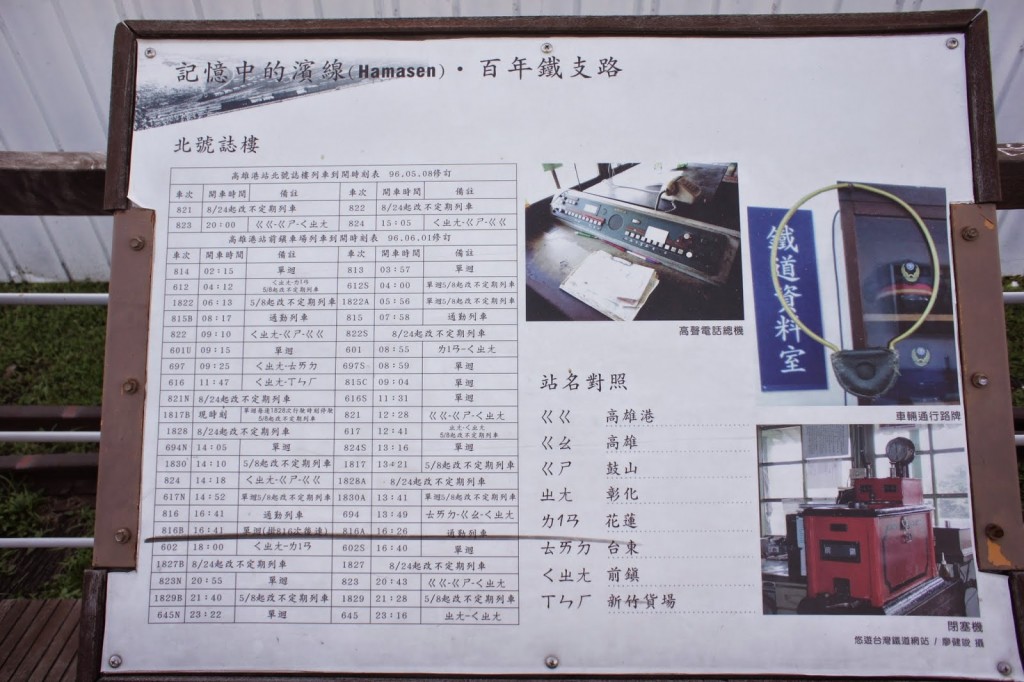 記憶中的濱線(Hamasen)·百年鐵支路
北號誌樓
高雄港站北號誌樓列車到開時刻表 96.05.08修訂
車次 開車時間 備註 車次 開車時間 備註
821 8/24起改不定期列車 822 8/24起改不定期列車
823 20:00 ㄍㄍ-ㄍㄕ-ㄑㄓㄤ 824 15:05 ㄑㄓㄤ-ㄍㄕ-ㄍㄍ
高雄港站前鎮車場列車到開時刻表 96.06.01修訂
車次 開車時間 備註 車次 開車時間 備註
814 02:15 單迴 813 03:57 單迴
612 04:12 ㄑㄓㄤ-ㄌ1ㄢ 5/8起改不定期列車 612S 04:00 單迴5/8起改不定期列車
1822 06:13 5/8起改不定期列車 1822A 05:56 單迴5/8起改不定期列車
815B 08:17 通勤列車 815 07:58 通勤列車
822 09:10 ㄑㄓㄤ-ㄍㄕ-ㄍㄍ 822S 8/24起改不定期列車
601U 09:15 單迴 601 08:55 ㄌ1ㄢ-ㄑㄓㄤ
697 09:25 ㄑㄓㄤ-ㄊㄞㄉ 697S 08:59 單迴
616 11:47 ㄑㄓㄤ-ㄒㄣㄏ 815C 09:04 單迴
821N 8/24起改不定期列車 616S 11:31 單迴
1817B 現時刻 5/8起改不定期列車 821 12:28 ㄍㄍ-ㄍㄕ-ㄑㄓㄤ
1828 8/24起改不定期列車 617 12:41 5/8起改不定期列車
694N 14:05 單迴 824S 13:16 單迴
1830 14:10 5/8起改不定期列車 1817 13:21 5/8起改不定期列車
824 14:18 ㄑㄓㄤ-ㄍㄕ-ㄍㄍ 1828A 8/24起改不定期列車
617N 14:52 單迴5/8起改不定期列車 1830A 13:41 單迴5/8起改不定期列車
816 16:41 通勤列車 694 13:49 ㄊㄞㄉ-ㄍㄠ-ㄑㄓㄤ
816B 16:41 816A 16:26 通勤列車
602 18:00 ㄑㄓㄤ-ㄌ1ㄢ 602S 16:40 單迴
1827B 8/24起改不定期列車 1827 8/24起改不定期列車
823N 20:55 單迴 823 20:43 ㄍㄍ-ㄍㄕ-ㄑㄓㄤ
1829B 21:40 5/8起改不定期列車 1829 21:28 5/8起改不定期列車
645N 23:22 單迴 645 23:16 ㄓㄤ-ㄑㄓㄤ
高聲電話總機
站名對照
ㄍㄍ 高雄港
ㄍㄠ 高雄
ㄍㄕ 鼓山
ㄓㄤ 彰化
ㄌ1ㄢ 花蓮
ㄊㄞㄉ 台東
ㄑㄓㄤ 前鎮
ㄒㄣㄏ 新竹貨場
鐵道資料室
車輛通行路牌
閉塞機
悠遊台灣鐵道網站 / 廖健竣 攝